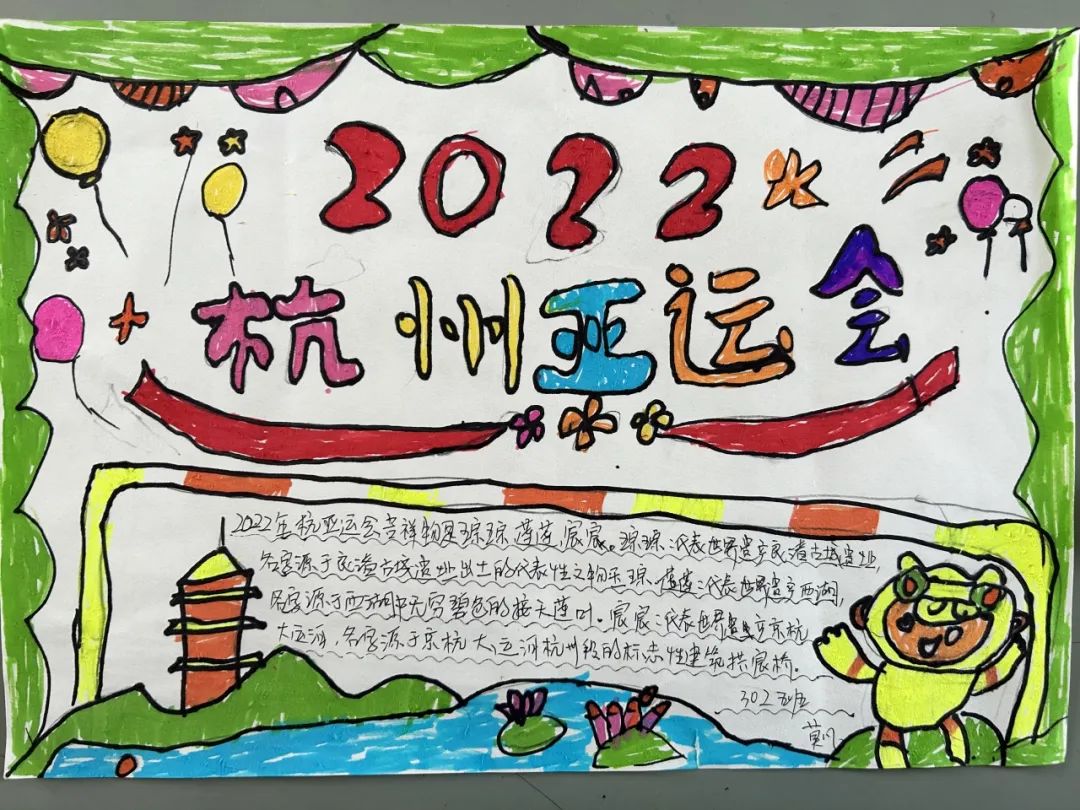 2022
杭州亚运会
2022年杭亚运会吉祥物是琮琮、莲莲、宸宸。琮琮:代表世界遗产良渚古城遗址,
名字源于良渚古城遗址出土的代表性文物玉琮。莲莲:代表世界遗产西湖,
名字源于西湖中无穷碧色的接天莲叶。宸宸:代表世界遗产京杭
大运河,名字源于京杭大运河杭州段的标志性建筑拱宸桥。
302班